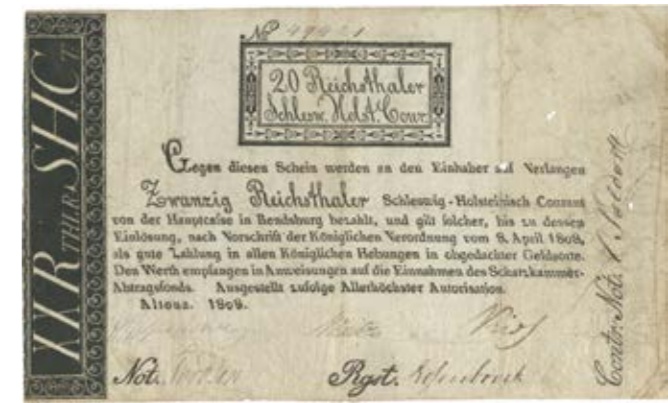 No 
20 Reichsthaler
Schlesw. Holst. Cour.
Gegen diesen Schein werden an den Einhaber auf Verlangen
Zwanzig Reichsthaler Schleswig-Holsteinisch Courant
von der Hauptcasse in Rendsburg bezahlt, und gilt solcher, bis zu dessen
Einlösung, nach Vorschrift der Königlichen Verordnung vom 8. April 1808,
als gute Zahlung in allen Königlichen Hebungen in obgedachter Geldsorte.
Den Werth empfangen in Anweisungen auf die Einnahmen des Schatzkammer-
Abtragsfonds. Ausgestellt zufolge Allerhöchster Autorisation.
Altona. 1808.
Not.
Rgst.
Contr. Not.
XX R THLR SHCT